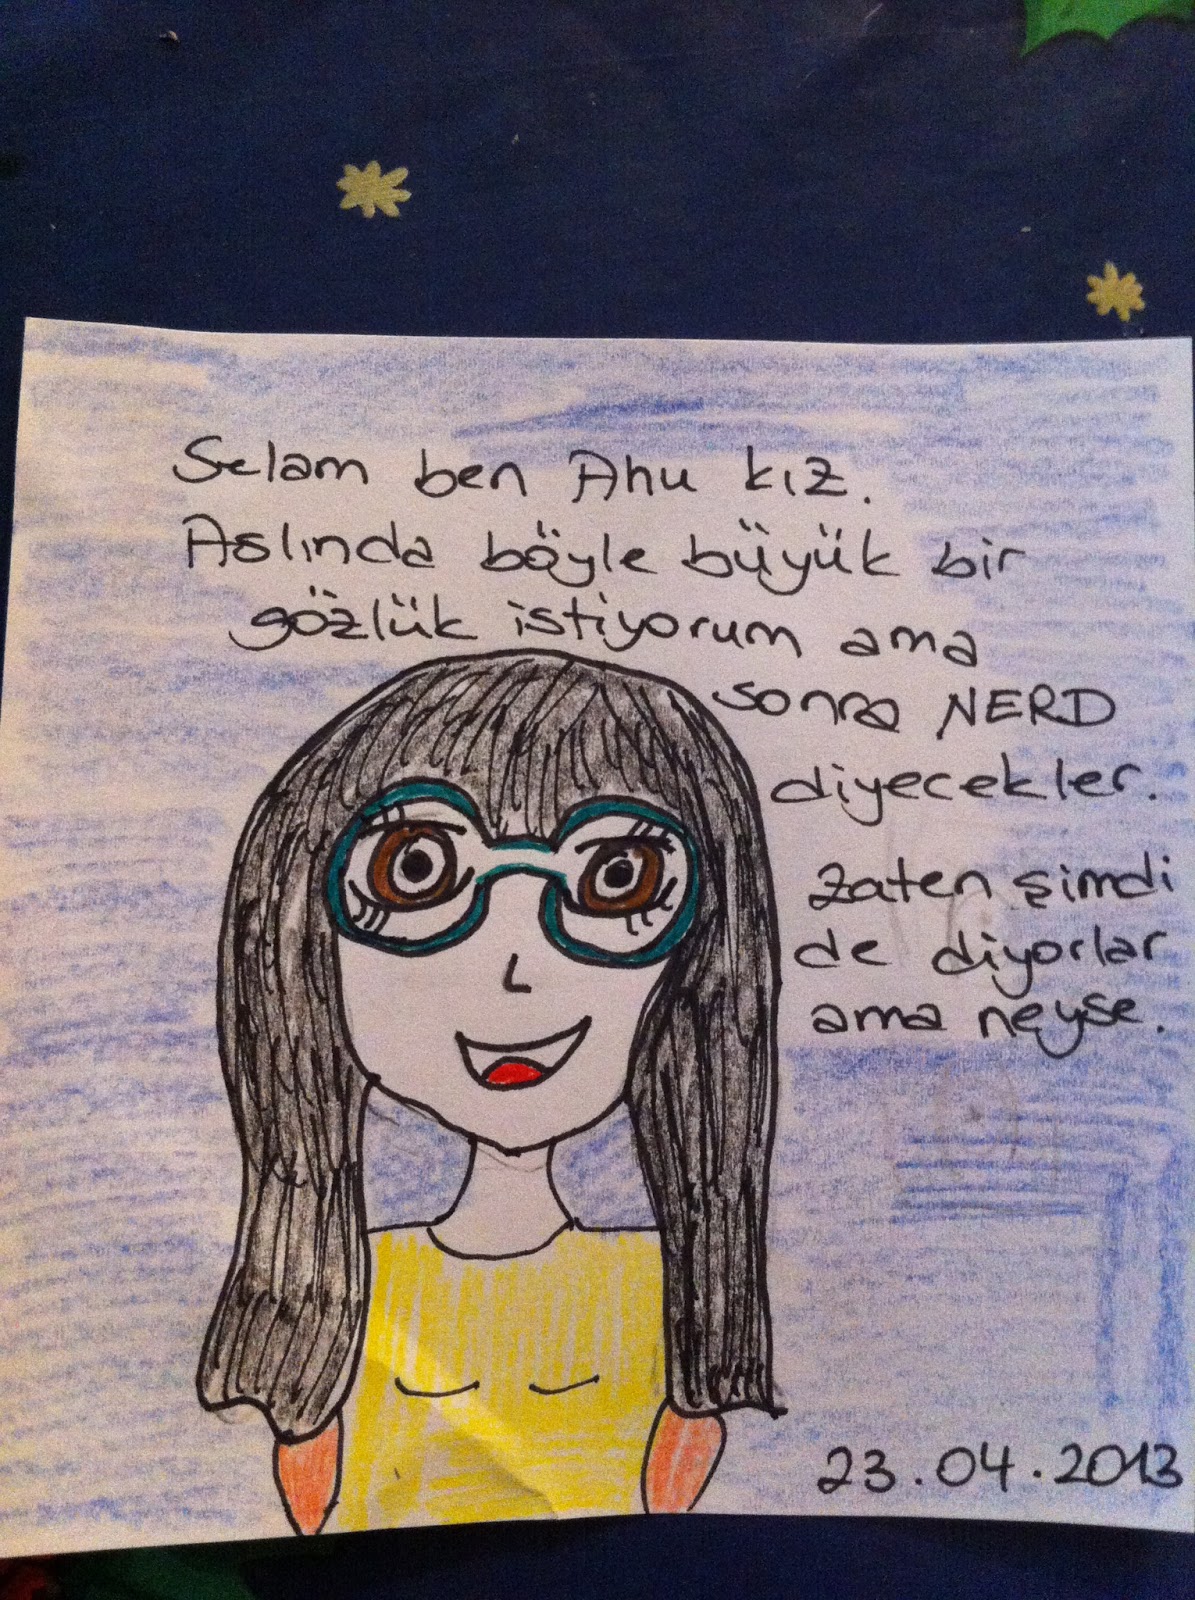 Selam ben Ahu kız.
Aslında böyle büyük bir
gözlük istiyorum ama
sonra NERD
diyecekler.
zaten şimdi
de diyorlar
ama neyse.
23.04.2013